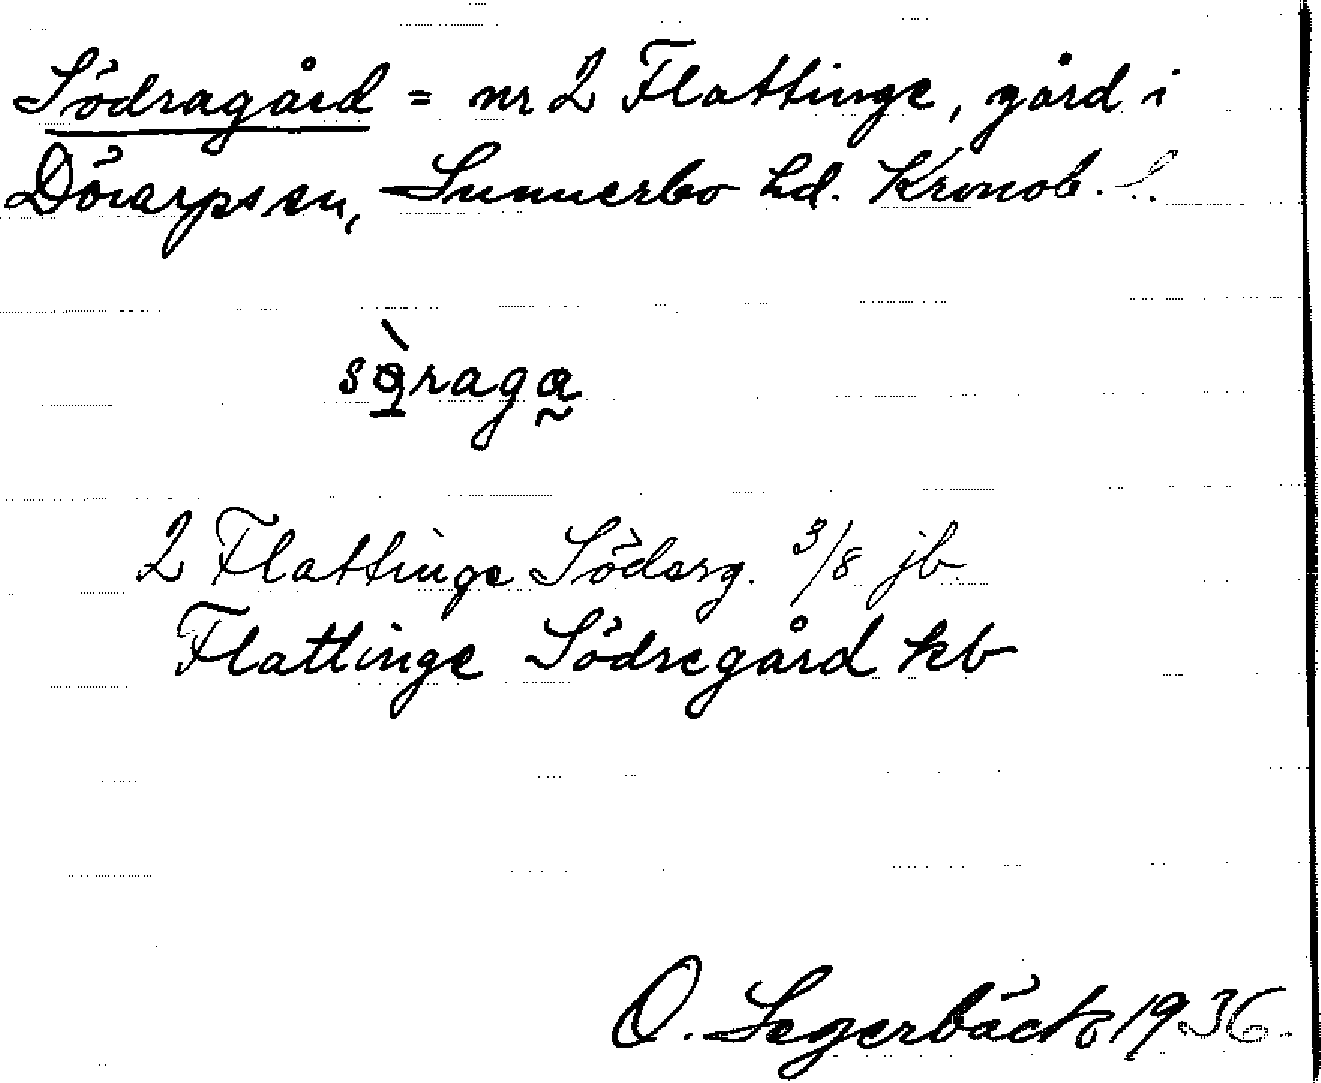 Södragård = nr 2 Flattinge, gård i
Dörarps sn, Sunnerbo hd. Kronob. l.
sö̀raga
2 Flattinge Söderg. 3/8 jb
Flattinge Södregård kb
O. Segerbäck 1936.